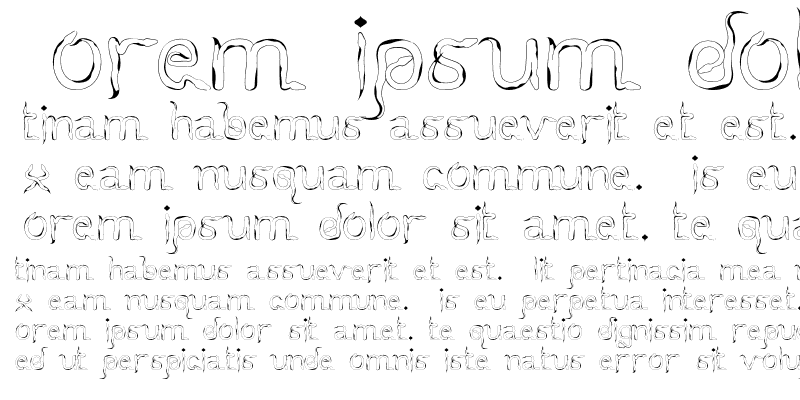 orem ipsum dol
tinam habemus assueverit et est.
x eam nusquam commune. is eu
orem ipsum dolor sit amet. te qua
tinam habemus assueverit et est. lit pertinacia mea
x eam nusquam commune. is eu perpetua interesset.
orem ipsum dolor sit amet. te quaestio dignissim repu
ed ut perspiciatis unde omnis iste natus error sit volu